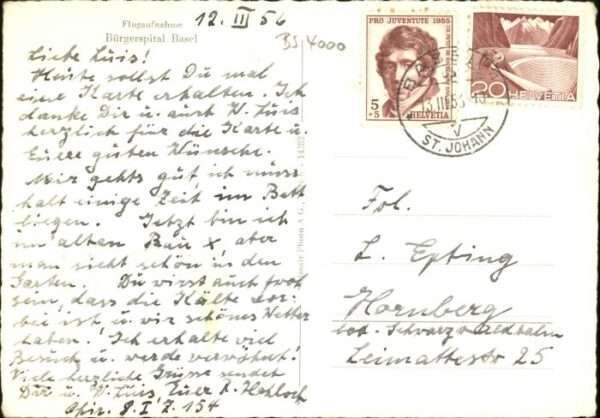 12. III 56
Flugaufnahme
Bürgerspital Basel
BS 4000
Liebe Luis!
Heute sollst Du mal
eine Karte erhalten. Ich
danke Dir u. auch W. Luis
herzlich für die Karte u.
Euere guten Wünsche.
Mir gehts gut, ich muss
halt einige Zeit im Bett
liegen. Jetzt bin ich
im alten Bau x, aber
man sieht schön in den
Garten. Du wirst auch froh
sein, dass die Kälte vor-
bei ist u. wir schönes Wetter
haben. Ich erhalte viel
Besuch u. werde verwöhnt!
Viele herzliche Grüsse sendet
Dir u. W. Luis Euer
Chir. I Z. 154
PRO JUVENTUTE 1955
5
+5
HELVETIA
20 HELVETIA
BASEL
ST. JOHANN
Frl.
L. Epting
Hornberg
Schwarzwaldbahn
Leimattestr 25